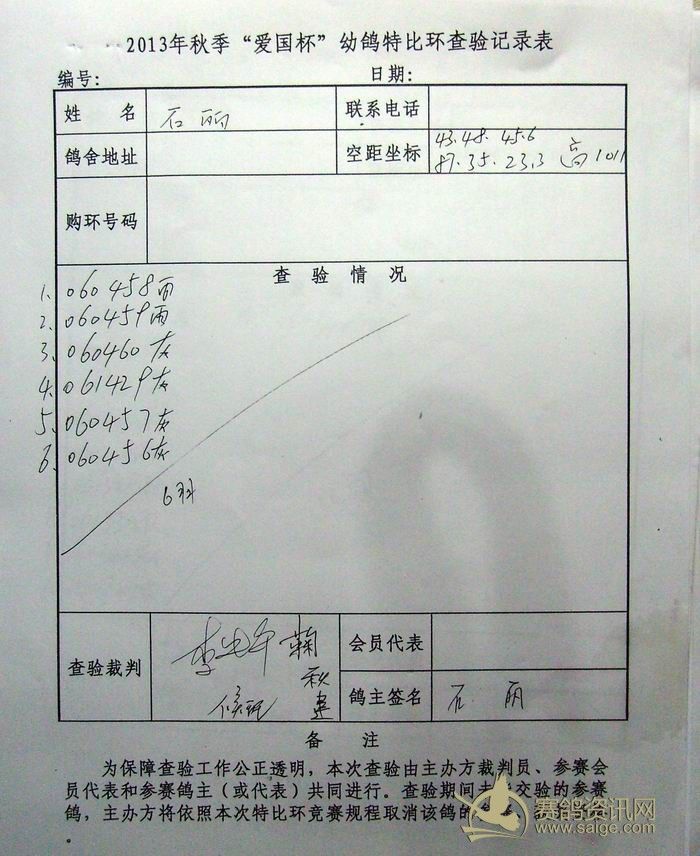 2013年秋季“爱国杯”幼鸽特比环查验记录表
编号： 日期：
姓 名 石丽 联系电话
鸽舍地址 空距坐标 43.48.45.6
87.35.23.3 高1011
购环号码
查验情况
1. 060458雨
2. 060459雨
3、060460灰
4. 061429灰
5、060457灰
6、060456灰
6羽
查验裁判 鞠秋 会员代表
鸽主签名 石丽
备 注
为保障查验工作公正透明，本次查验由主办方裁判员、参赛会
员代表和参赛鸽主（或代表）共同进行。查验期间未能交验的参赛
鸽，主办方将依照本次特比环竞赛规程取消该鸽的
。
赛鸽资讯网
www.saige.com